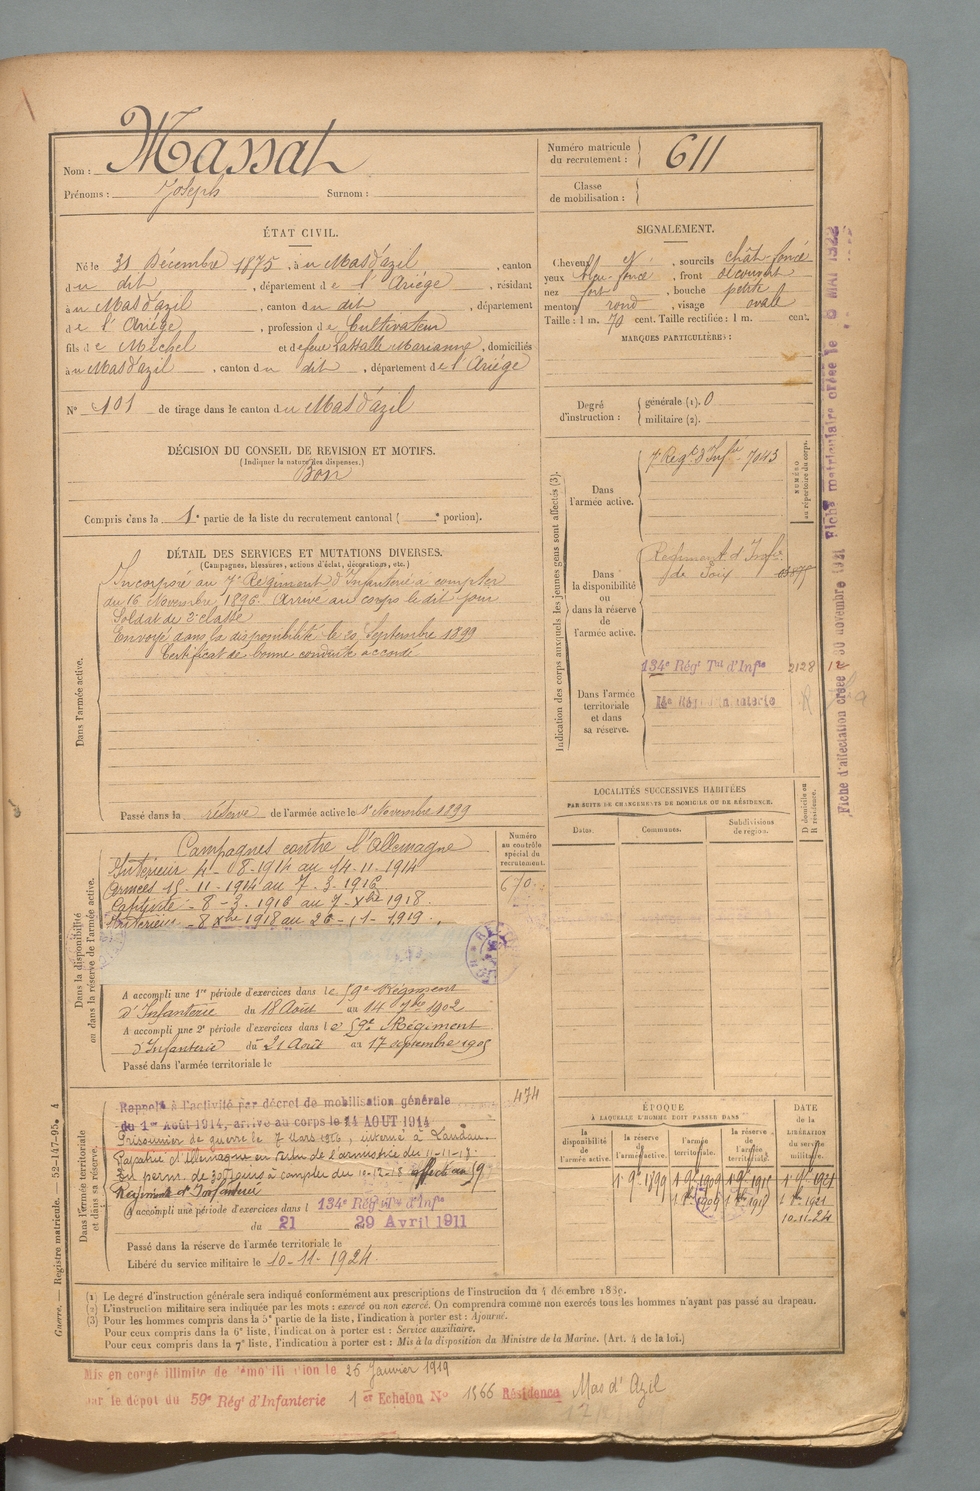 Nom : Massat
Prénoms : Joseph Surnom :
Numéro matricule du recrutement : 611
Classe de mobilisation :
ÉTAT CIVIL.
Né le 31 Décembre 1875, à u Mas d'azil, canton
d u dit, département d e l'Ariége, résidant
à u Mas d'azil, canton d u dit, département
d e l'Ariége, profession d e Cultivateur
fils d e Michel et d e feue Lassalle Marianne, domiciliés
à u Mas d'azil, canton d u dit, département d e l'Ariége
N° 101 de tirage dans le canton d u Mas d'azil
SIGNALEMENT.
Cheveux N, sourcils chât-foncé
yeux bleu-foncé, front découvert
nez fort, bouche petite
menton rond, visage ovale
Taille : 1 m. 70 cent. Taille rectifiée : 1 m. cent.
MARQUES PARTICULIÈRES :
Degré d'instruction : générale (1). 0
militaire (2).
DÉCISION DU CONSEIL DE REVISION ET MOTIFS.
(Indiquer la nature des dispenses.)
Bon
Compris dans la 1e partie de la liste du recrutement cantonal ( e portion).
DÉTAIL DES SERVICES ET MUTATIONS DIVERSES.
(Campagnes, blessures, actions d'éclat, décorations, etc.)
Dans l'armée active.
Incorporé au 7e Régiment d'Infanterie à compter
du 16 Novembre 1896. Arrivé au corps le dit jour
Soldat de 2e classe
Envoyé dans la disponibilité le 20 Septembre 1899
Certificat de bonne conduite accordé.
Passé dans la réserve de l'armée active le 1er Novembre 1899
Indication des corps auxquels les jeunes gens sont affectés (3).
NUMÉRO au répertoire du corps.
Dans l'armée active.
7e Regt d'Infie 7043
Dans la disponibilité ou dans la réserve de l'armée active.
Régiment d'Infie
de Foix
Dans l'armée territoriale et dans sa réserve.
134e Régt Tal d'Infie 2128
LOCALITÉS SUCCESSIVES HABITÉES
PAR SUITE DE CHANGEMENTS DE DOMICILE OU DE RÉSIDENCE.
Dates. Communes. Subdivisions de région. D domicile ou R résidence.
Dans la disponibilité ou dans la réserve de l'armée active.
Numéro au contrôle spécial du recrutement.
670
Campagnes contre l'Allemagne
Intérieur 4-08-1914 au 14-11-1914
Armées 15-11-1914 au 7-3-1916
Captivité - 8-3-1916 au 7-Xbre 1918.
Intérieur - 8 Xbre 1918 au 26-1-1919.
A accompli une 1re période d'exercices dans l e 59e Régiment
d'Infanterie du 18 Août au 14 7bre 1902
A accompli une 2e période d'exercices dans l e 59e Régiment
d'Infanterie du 21 Août au 17 septembre 1905
Passé dans l'armée territoriale le
Dans l'armée territoriale et dans sa réserve.
474
Rappelé à l'activité par décret de mobilisation générale
du 1er Août 1914, arrivé au corps le 14 AOUT 1914
Prisonnier de guerre le 7 Mars 1916, interné à Landau.
Rapatrié d'Allemagne en vertu de l'armistice du 11-11-18.
En perm. de 30 jours à compter du 10-12-18 affecté au 59
Régiment d'Infanterie
A accompli une période d'exercices dans l 134e Régt Tal d'Infie
du 21 au 29 Avril 1911
Passé dans la réserve de l'armée territoriale le
Libéré du service militaire le 10-11-1924.
ÉPOQUE
À LAQUELLE L'HOMME DOIT PASSER DANS
DATE DE LA LIBÉRATION du service militaire.
la disponibilité de l'armée active. la réserve de l'armée active. l'armée territoriale. la réserve de l'armée territoriale.
1er 9bre 1899 1er 9bre 1909 1er 9bre 1915 1er 9bre 1921
10-11-24
(1) Le degré d'instruction générale sera indiqué conformément aux prescriptions de l'instruction du 4 décembre 1889.
(2) L'instruction militaire sera indiquée par les mots : exercé ou non exercé. On comprendra comme non exercés tous les hommes n'ayant pas passé au drapeau.
(3) Pour les hommes compris dans la 5e partie de la liste, l'indication à porter est : Ajourné.
Pour ceux compris dans la 6e liste, l'indication à porter est : Service auxiliaire.
Pour ceux compris dans la 7e liste, l'indication à porter est : Mis à la disposition du Ministre de la Marine. (Art. 4 de la loi.)
Mis en congé illimité de démobilisation le 26 Janvier 1919
par le dépôt du 59e Régt d'Infanterie 1er Echelon N° 1366 Résidence Mas d'Azil
Guerre. — Registre matricule. — 52-147-95. 4
Fiche d'affectation créée le 30 novembre 1921 Fiche matriculaire créée le 8 MAI 1922